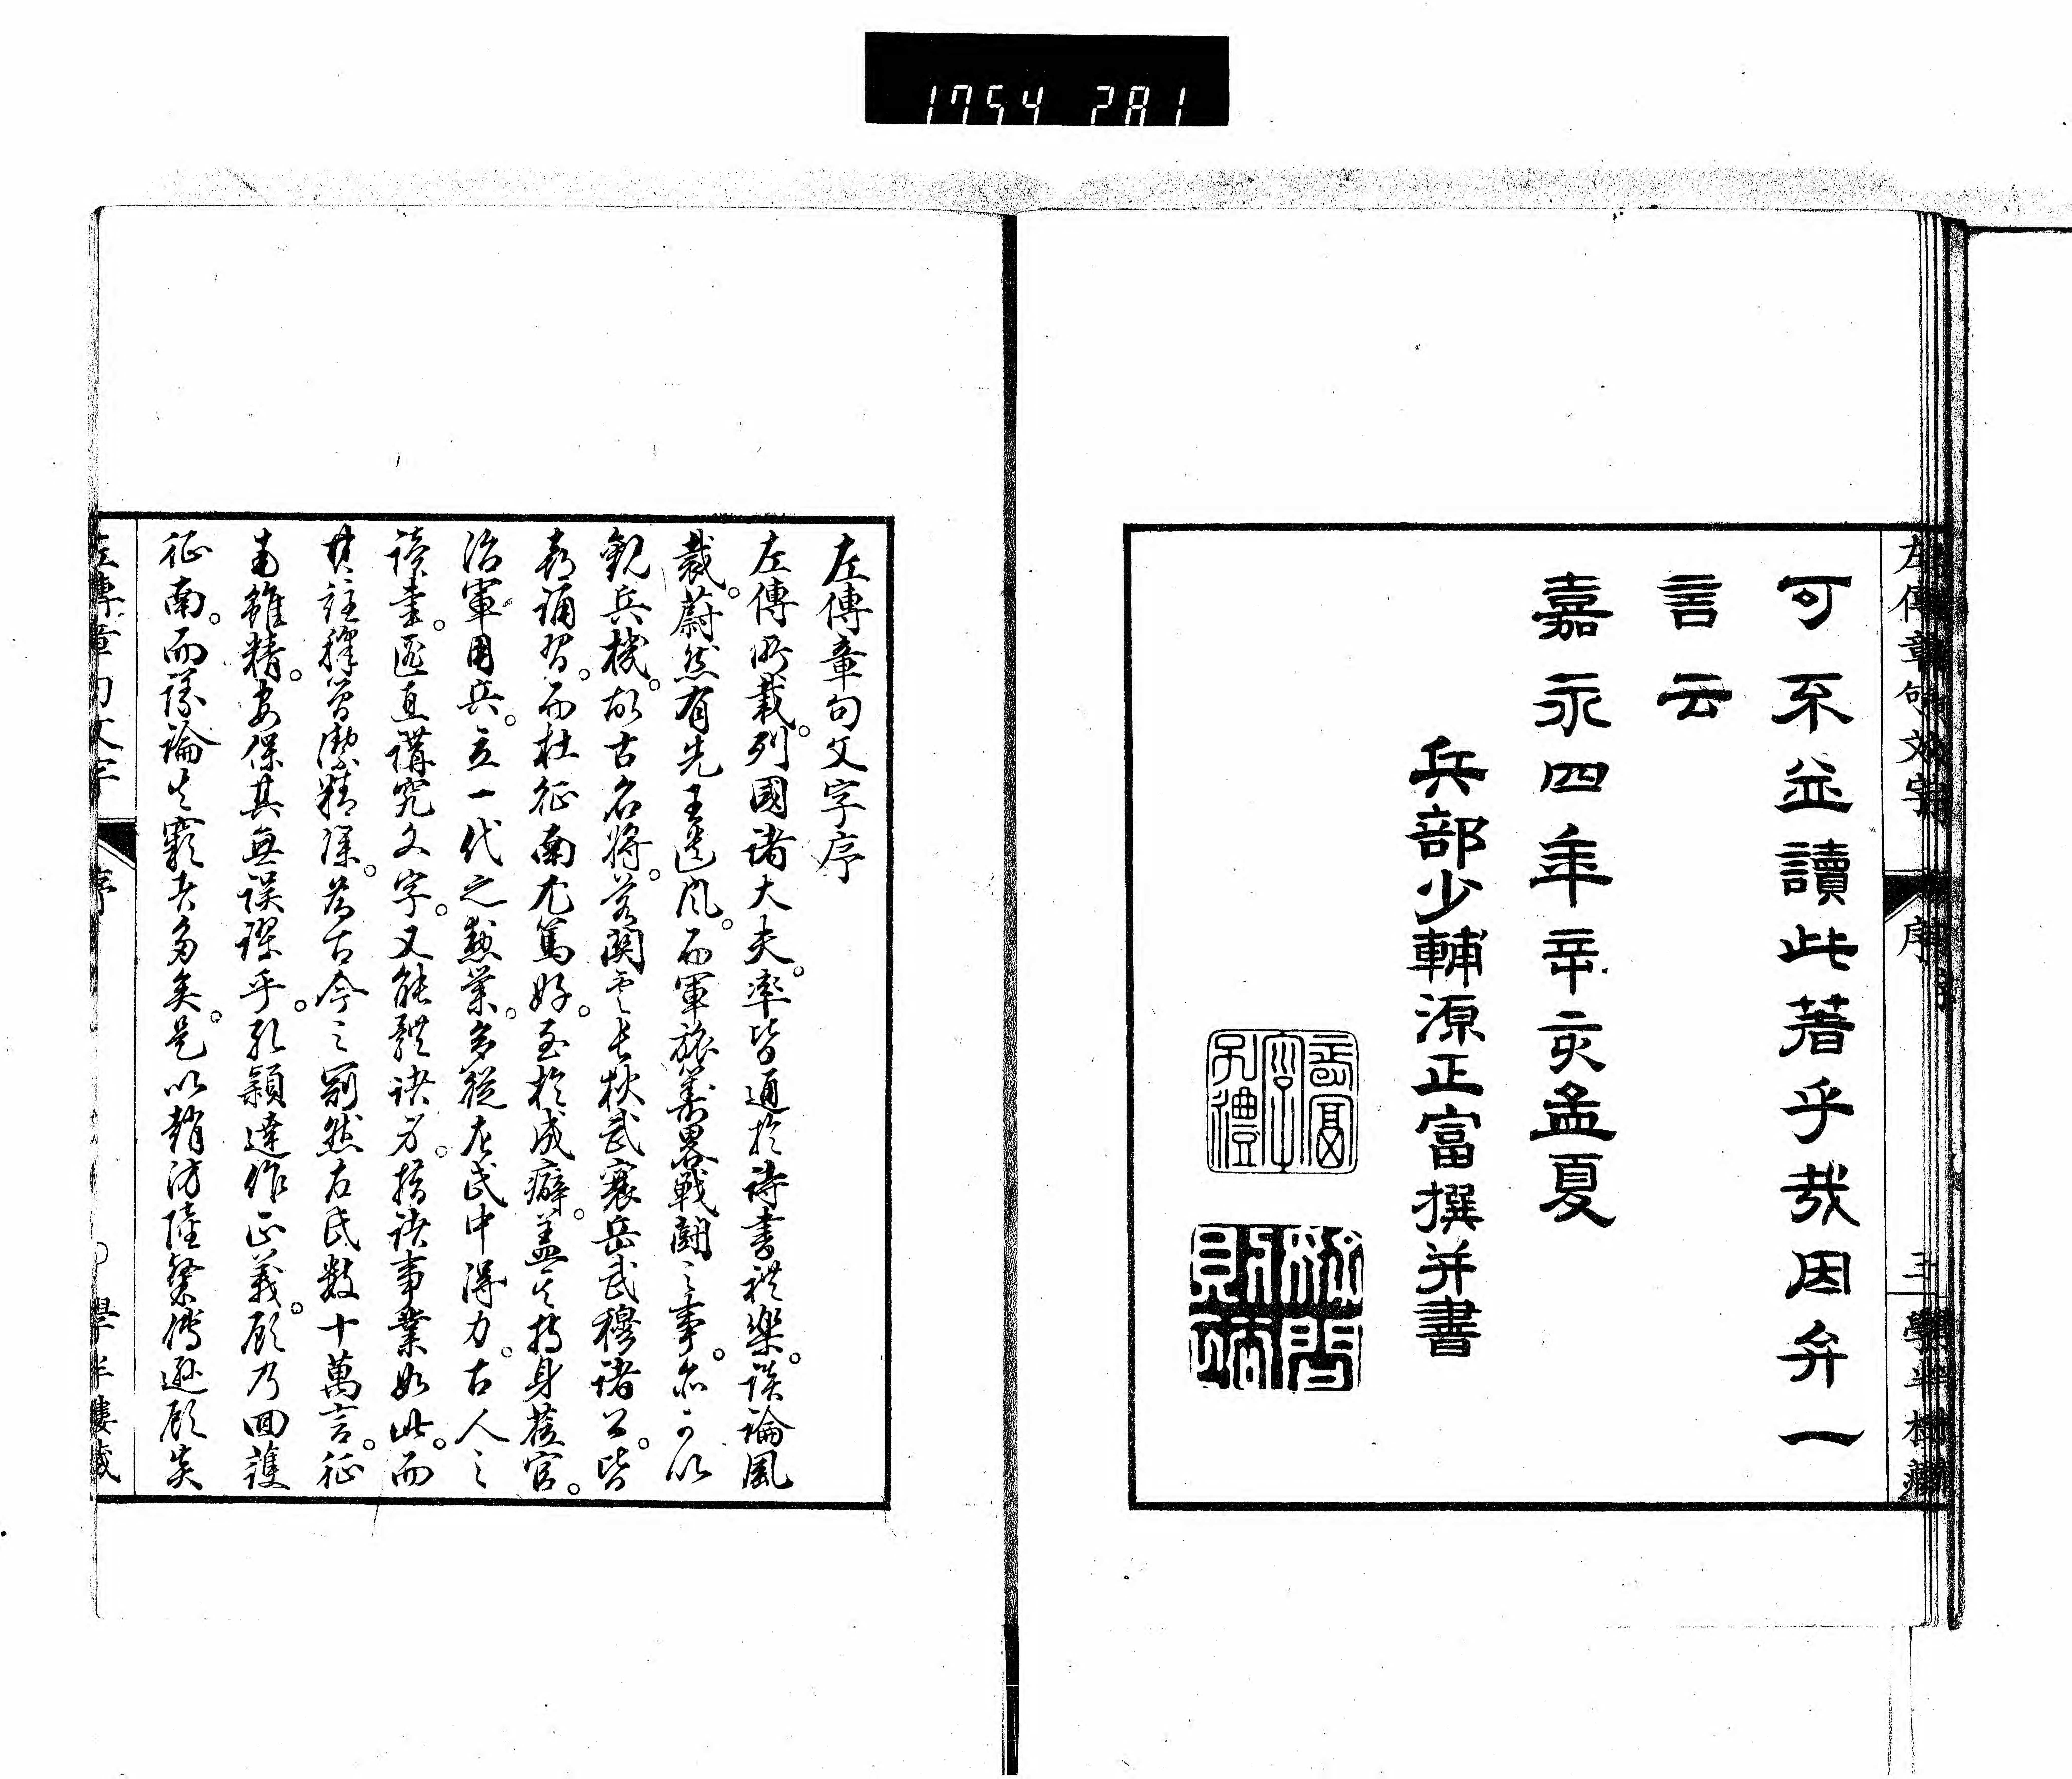 1754 281
可不益讀此著乎哉因弁一
言云
嘉永四年辛亥孟夏
兵部少輔源正富撰并書
左傳章句文字 序 三 學半樓藏
左傳章句文字序
左傳所載。列國諸大夫。率皆通於詩書禮樂。談論風
裁。蔚然有先王遺風。而軍旅籌畧戰鬪之事。亦可以
觀兵機。故古名將。若關雲長狄武襄岳武穆諸公。皆
喜誦習。而杜征南尤篤好。至於成癖。蓋其持身蒞官。
治軍用兵。立一代之勲業。多從左氏中得力。古人之
讀書。匪直講究文字。又能體諸身。措諸事業如此。而
其註釋簡潔精深。為古今之冠。然左氏數十萬言。征
南雖精。安保其無誤謬乎。孔穎達作正義。顧乃回護
征南。而議論其竅者多矣。是以趙汸陸粲傅遜顧炎
左傳章句文字 序 學半樓藏